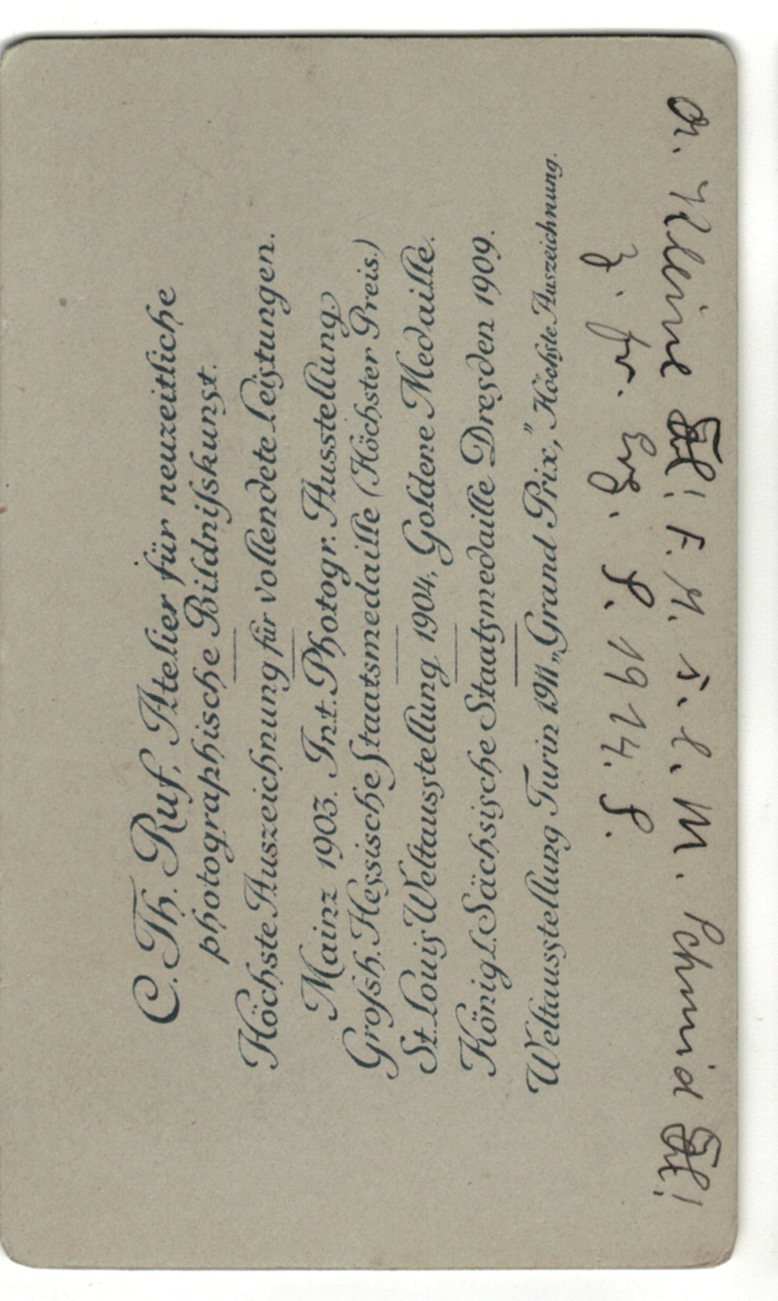 C. Th. Ruf, Atelier für neuzeitliche
photographische Bildnißkunst.
Höchste Auszeichnung für vollendete Leistungen.
Mainz 1903. Int. Photogr. Ausstellung
Großh. Hessische Staatsmedaille (Höchster Preis.)
St. Louis Weltausstellung 1904, Goldene Medaille.
Königl. Sächsische Staatsmedaille Dresden 1909.
Weltausstellung Turin 1911 „Grand Prix,” Höchste Auszeichnung.
Kleine F. M. s. l. M. Schmid
z. fr. Erg. S. 1914. S.